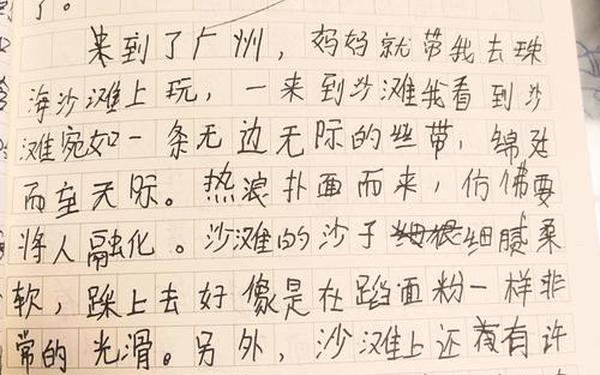 了。
来到了广州，妈妈就带我去珠
海沙滩上玩，一来到沙滩我看到沙
滩宛如一条无边无际的丝带，绵延
而至天际。热浪扑面而来，仿佛要
将人融化。沙滩的沙子细腻柔
软，踩上去好像是在蹈面粉一样非
常的光滑。另外，沙滩上还有许